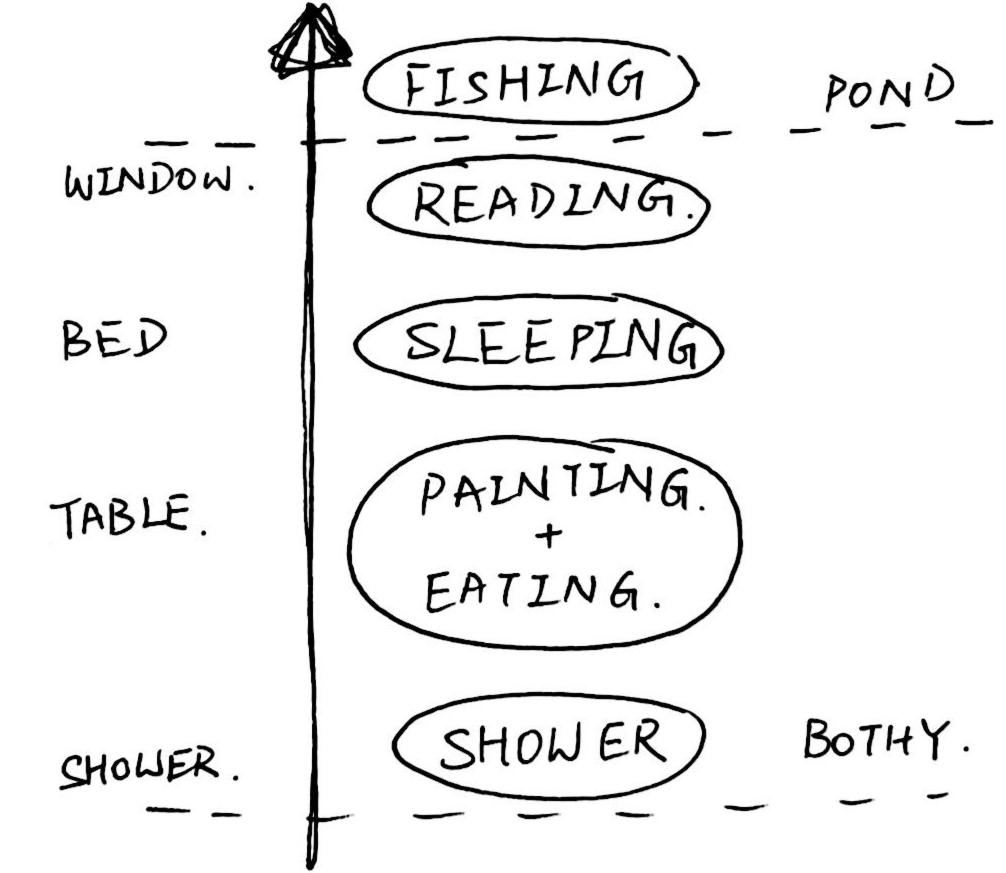 FISHING
POND
WINDOW.
READING.
BED
SLEEPING
PAINTING.
TABLE.
+
EATING.
SHOWER
BOTHY.
SHOWER.